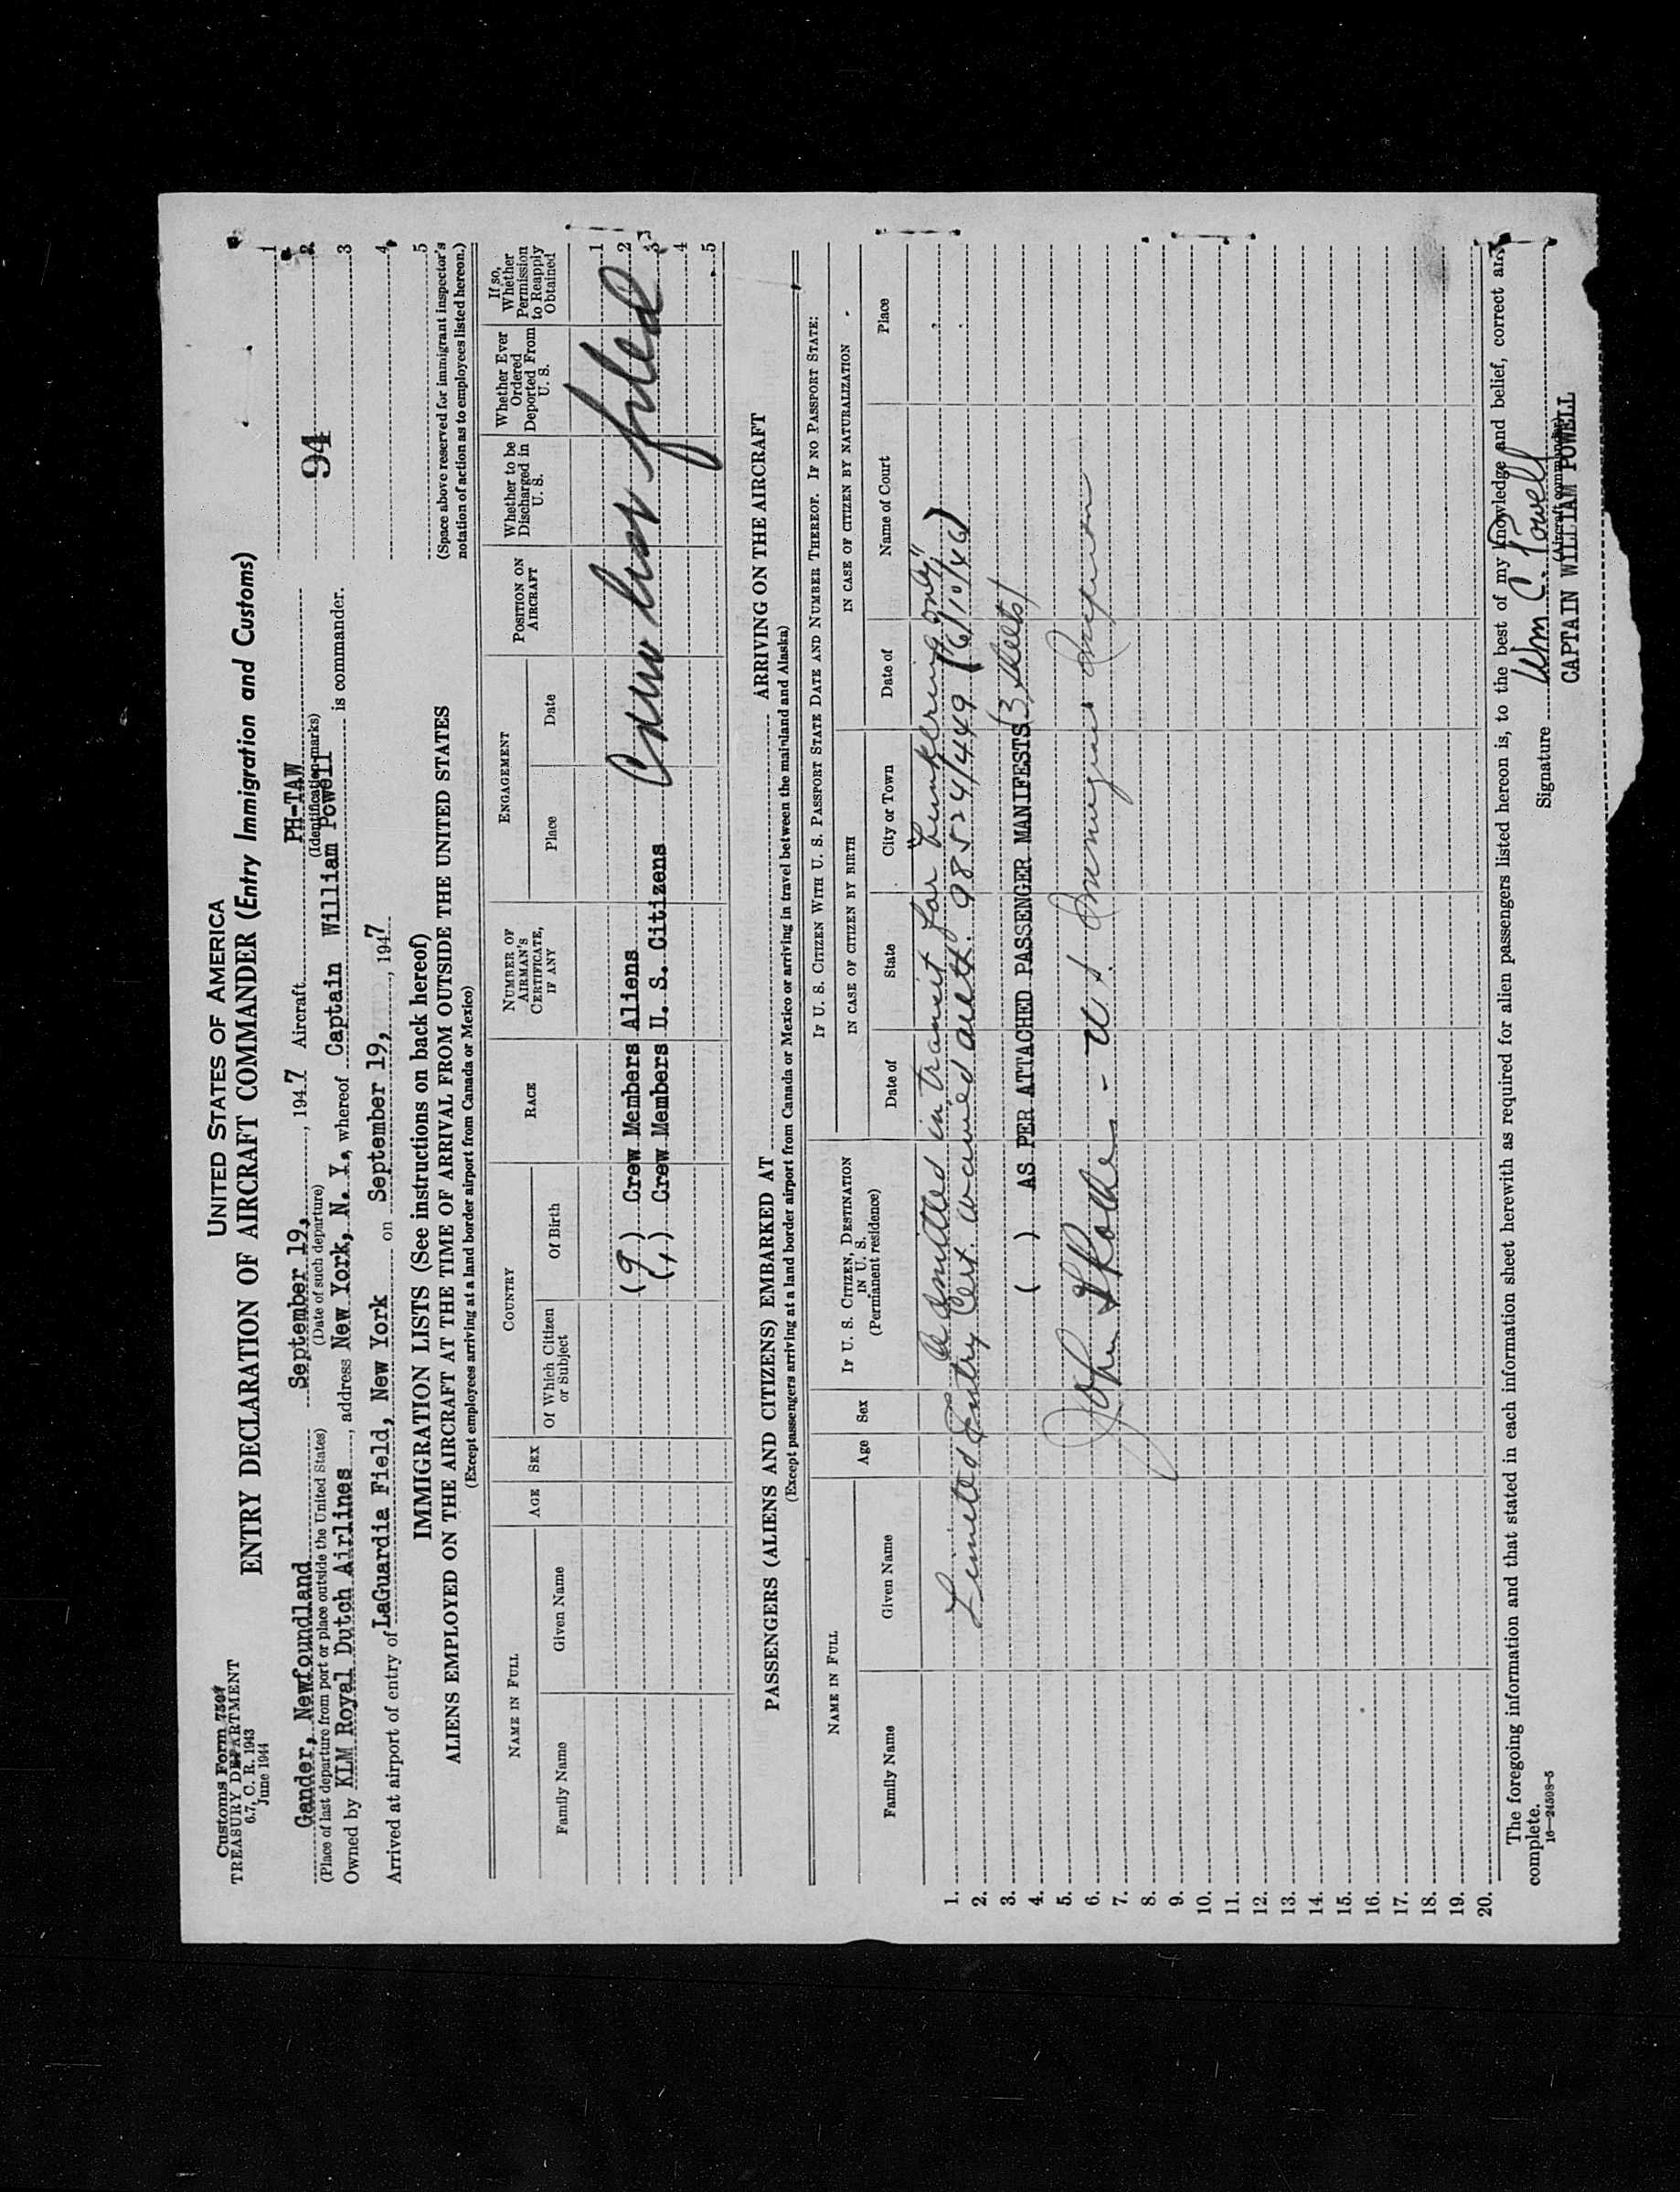 Customs Form 7507
TREASURY DEPARTMENT
6.7, C. R. 1943
June 1944
UNITED STATES OF AMERICA
ENTRY DECLARATION OF AIRCRAFT COMMANDER (Entry Immigration and Customs)
Gander, Newfoundland September 19, , 1947 Aircraft PH-TAW
(Place of last departure from port or place outside the United States) (Date of such departure) (Identification marks)
Owned by KLM Royal Dutch Airlines, address New York, N. Y., whereof Captain William Powell is commander.
Arrived at airport of entry of LaGuardia Field, New York on September 19, , 1947
1
2
94
3
4
5
(Space above reserved for immigrant inspector's
notation of action as to employees listed hereon.)
IMMIGRATION LISTS (See instructions on back hereof)
ALIENS EMPLOYED ON THE AIRCRAFT AT THE TIME OF ARRIVAL FROM OUTSIDE THE UNITED STATES
(Except employees arriving at a land border airport from Canada or Mexico)
NAME IN FULL AGE SEX COUNTRY RACE NUMBER OF AIRMAN'S CERTIFICATE, IF ANY ENGAGEMENT POSITION ON AIRCRAFT Whether to be Discharged in U. S. Whether Ever Ordered Deported From U. S. If so, Whether Permission to Reapply Obtained
Family Name Given Name Of Which Citizen or Subject Of Birth Place Date
1
(9) Crew Members Aliens 2
( ) Crew Members U. S. Citizens 3
Crew list filed
4
5
PASSENGERS (ALIENS AND CITIZENS) EMBARKED AT ARRIVING ON THE AIRCRAFT
(Except passengers arriving at a land border airport from Canada or Mexico or arriving in travel between the mainland and Alaska)
NAME IN FULL Age Sex IF U. S. CITIZEN, DESTINATION IN U. S. (Permanent residence) IF U. S. CITIZEN WITH U. S. PASSPORT STATE DATE AND NUMBER THEREOF. IF NO PASSPORT STATE:
IN CASE OF CITIZEN BY BIRTH IN CASE OF CITIZEN BY NATURALIZATION
Family Name Given Name Date of State City or Town Date of Name of Court Place
1. Admitted in transit for "bunkering only"
2. Limited Entry Cert. waived auth. 98524/449 (6/10/46)
3.
4. ( ) AS PER ATTACHED PASSENGER MANIFESTS (3 sheets)
5.
6. John - U. S. Immigrant Inspector
7.
8.
9.
10.
11.
12.
13.
14.
15.
16.
17.
18.
19.
20.
The foregoing information and that stated in each information sheet herewith as required for alien passengers listed hereon is, to the best of my knowledge and belief, correct and
complete.
16—24598-5
Signature Wm C. Powell
(Aircraft commander)
CAPTAIN WILLIAM POWELL